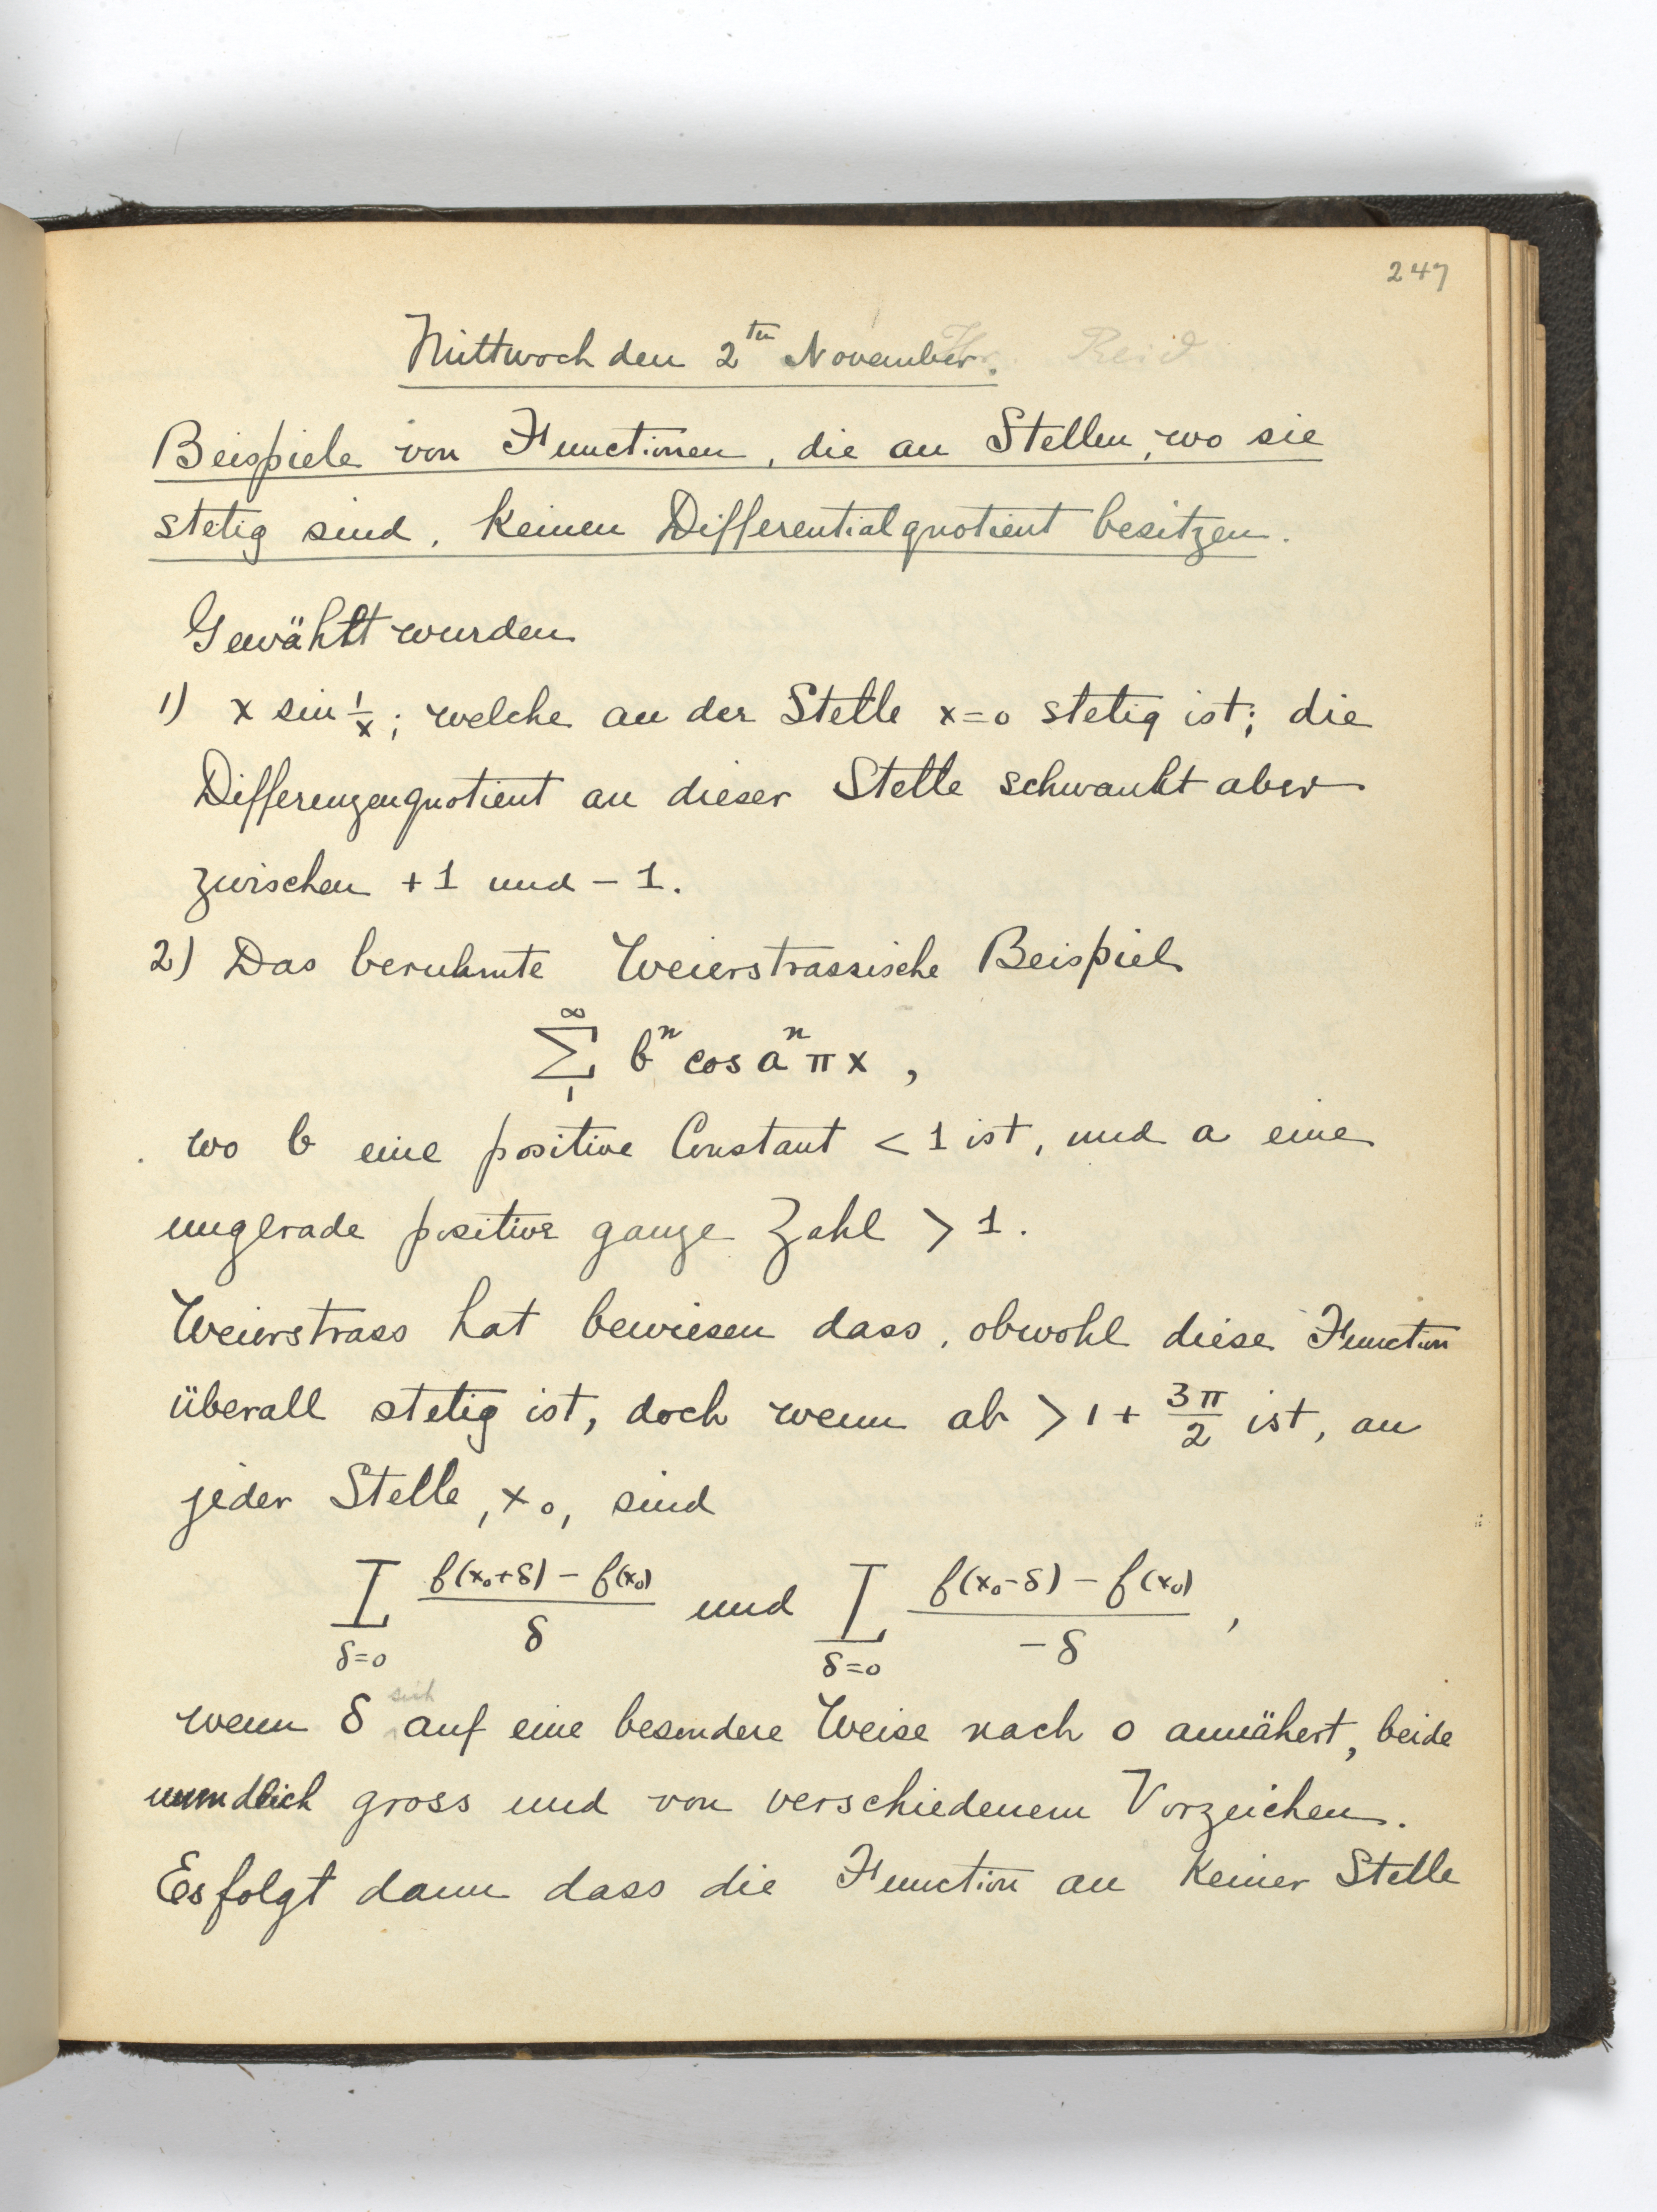 247
Mittwoch den 2ten November. Hr. Reid
Beispiele von Functionen, die an Stellen, wo sie
stetig sind, keinen Differentialquotient besitzen.
Gewählt wurden
1) x sin 1/x; welche an der Stelle x=0 stetig ist; die
Differenzenquotient an dieser Stelle schwankt aber
zwischen +1 und -1.
2) Das beruhmte Weierstrassische Beispiel
∑₁^∞ bⁿ cos aⁿ π x ,
wo b eine positive Constant < 1 ist, und a eine
ungerade positive ganze Zahl > 1.
Weierstrass hat bewiesen dass, obwohl diese Function
überall stetig ist, doch wenn ab > 1 + 3π/2 ist, an
jeder Stelle, x₀, sind
L δ=0 (f(x₀+δ) - f(x₀))/δ und L δ=0 (f(x₀-δ) - f(x₀))/-δ ,
wenn δ sich auf eine besondere Weise nach 0 annähert, beide
unendlich gross und von verschiedenem Vorzeichen.
Es folgt dann dass die Function an keiner Stelle